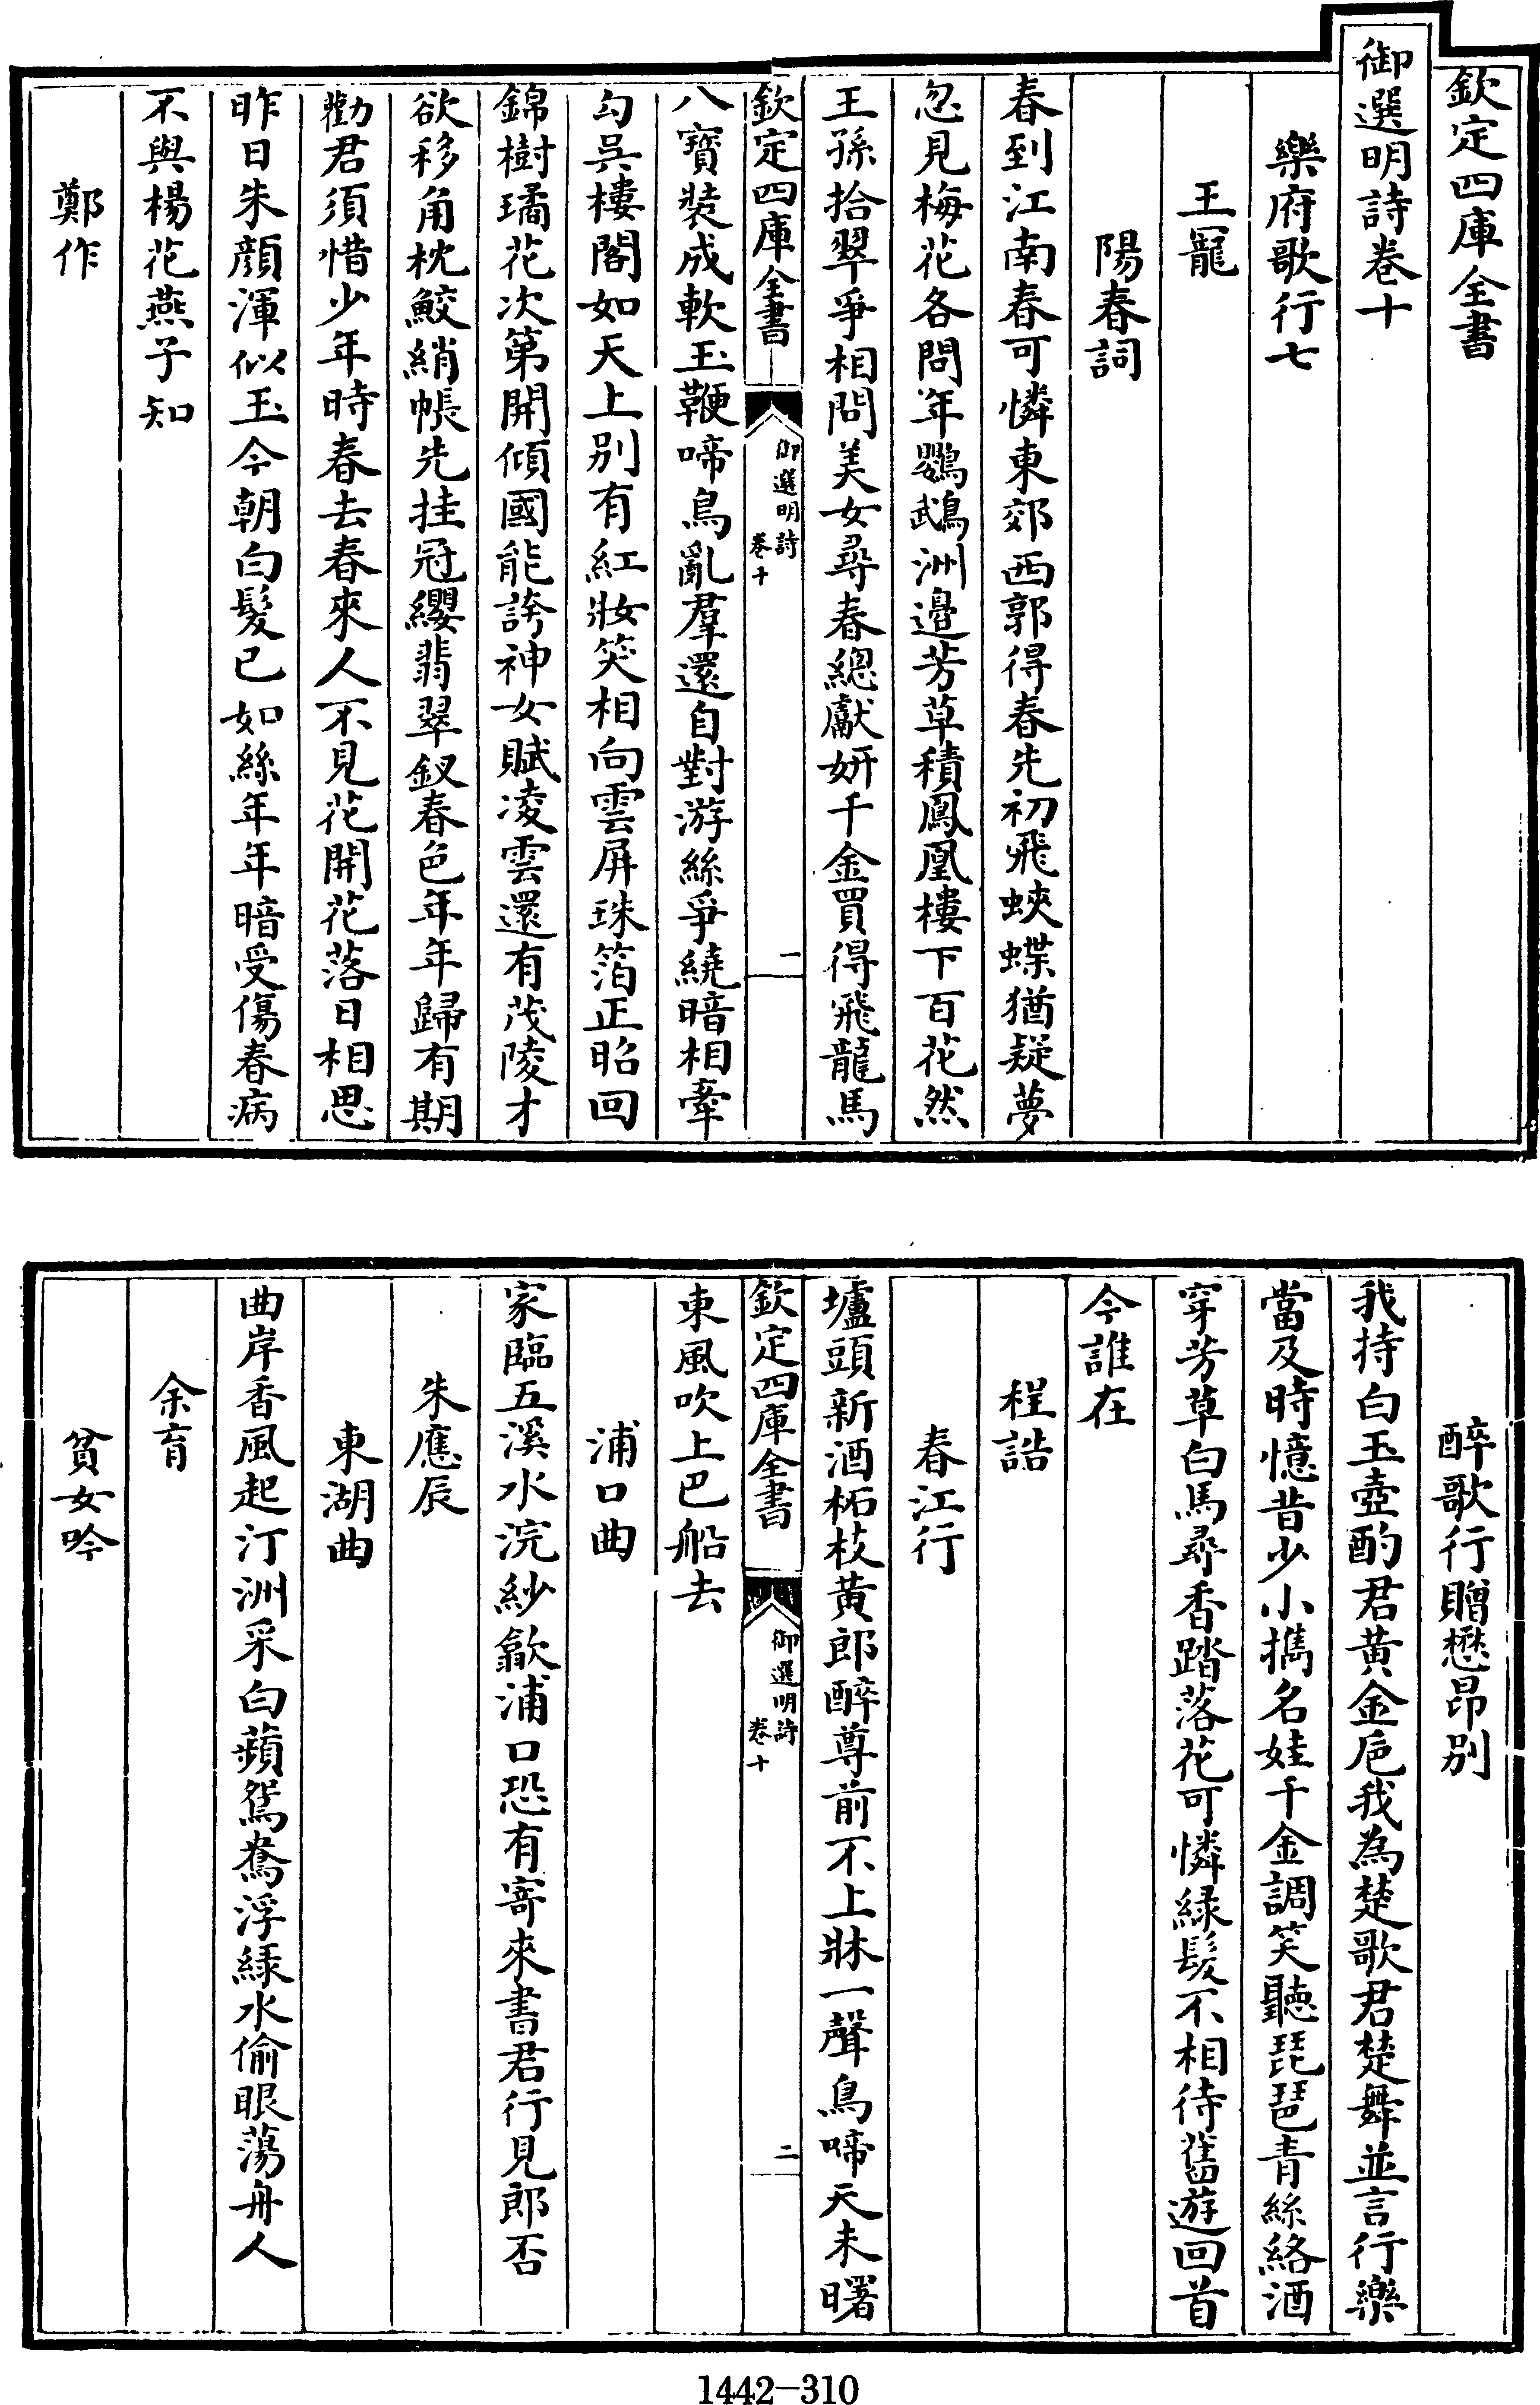 欽定四庫全書
御選明詩卷十
樂府歌行七
王寵
陽春詞
春到江南春可憐東郊西郭得春先初飛蛺蝶猶疑夢
忽見梅花各問年鸚鵡洲邉芳草積鳳凰樓下百花然
王孫拾翠爭相問美女尋春總獻妍千金買得飛龍馬
欽定四庫全書
御選明詩
卷十
一
八寳裝成軟玉鞭啼鳥亂羣還自對游絲爭繞暗相牽
勾吳樓閣如天上别有紅妝笑相向雲屏珠箔正昭回
錦樹璚花次第開傾國能誇神女賦凌雲還有茂陵才
欲移角枕鮫綃帳先挂冠纓翡翠釵春色年年歸有期
勸君須惜少年時春去春來人不見花開花落日相思
昨日朱顔渾似玉今朝白髪已如絲年年暗受傷春病
不與楊花燕子知
鄭作
醉歌行贈懋昂别
我持白玉壺酌君黄金巵我為楚歌君楚舞並言行樂
當及時憶昔少小擕名娃千金調笑聽琵琶青絲絡酒
穿芳草白馬尋香踏落花可憐緑髪不相待舊遊回首
今誰在
程誥
春江行
壚頭新酒柘枝黄郎醉尊前不上牀一聲鳥啼天未曙
欽定四庫全書
御選明詩
卷十
二
東風吹上巴船去
浦口曲
家臨五溪水浣紗歙浦口恐有寄來書君行見郎否
朱應辰
東湖曲
曲岸香風起汀洲采白蘋鴛鴦浮緑水偷眼蕩舟人
余育
貧女吟
1442-310